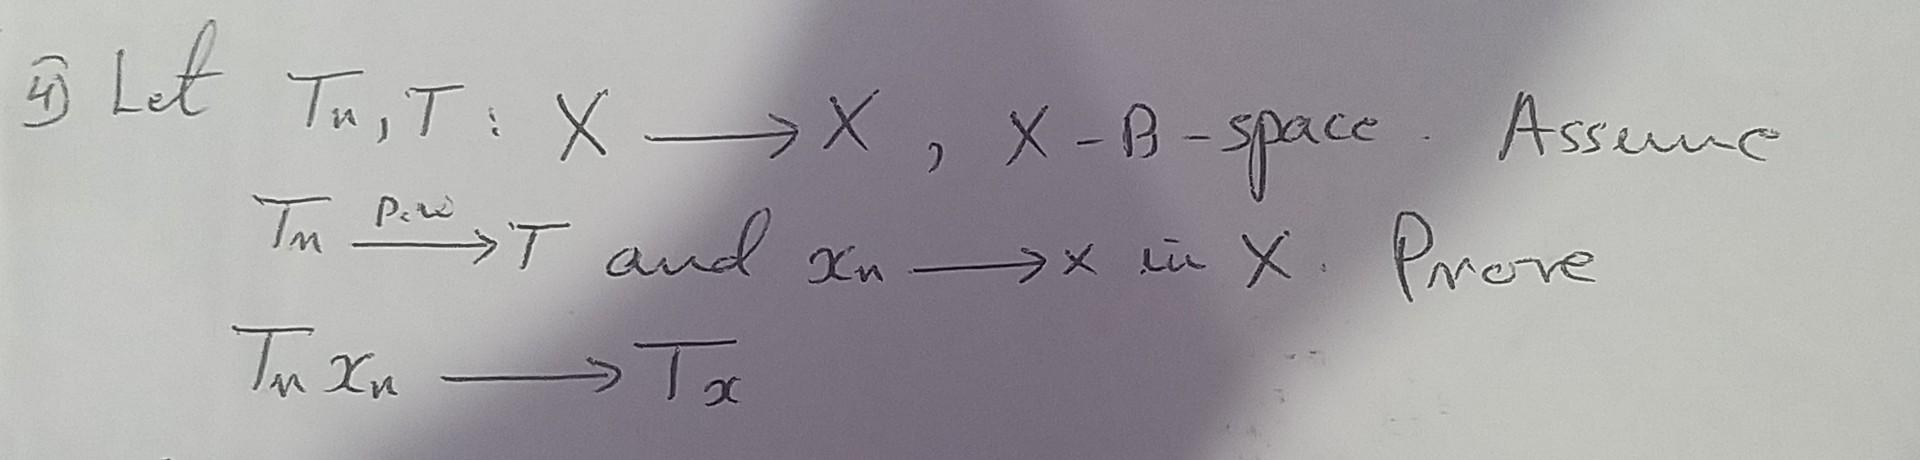 4) Let Tn, T : X ⟶ X , X - B - space . Assume
Tn —p.w→ T and xn ⟶ x in X. Prove
Tn xn ⟶ Tx